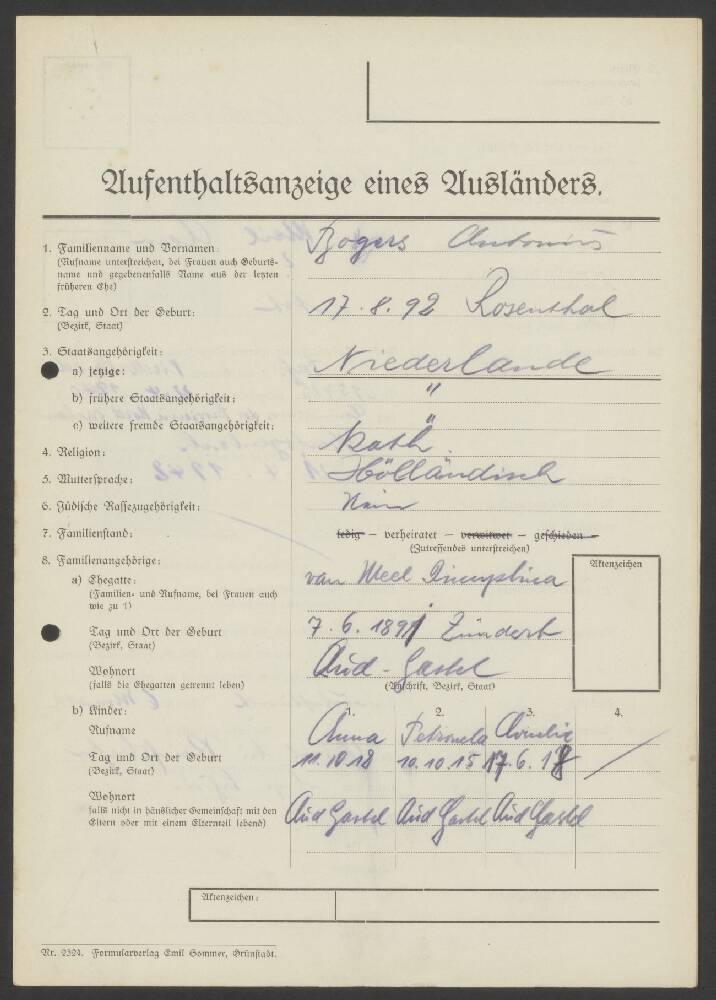 Aufenthaltsanzeige eines Ausländers.
1. Familienname und Vornamen: Bogers Antonius
(Rufname unterstreichen, bei Frauen auch Geburts-
name und gegebenenfalls Name aus der letzten
früheren Ehe)
2. Tag und Ort der Geburt: 17.8.92 Rosenthal
(Bezirk, Staat)
3. Staatsangehörigkeit:
a) jetzige: Niederlande
b) frühere Staatsangehörigkeit: "
c) weitere fremde Staatsangehörigkeit: "
4. Religion: Kath.
5. Muttersprache: Holländisch
6. Jüdische Rassezugehörigkeit: Nein
7. Familienstand: ledig – verheiratet – verwitwet – geschieden
(Zutreffendes unterstreichen)
8. Familienangehörige:
Aktenzeichen
a) Ehegatte: van Meel
(Familien- und Rufname, bei Frauen auch
wie zu 1)
Tag und Ort der Geburt 7.6.1891 Zündert
(Bezirk, Staat)
Wohnort Aud-Gastel
(falls die Ehegatten getrennt leben) (Anschrift, Bezirk, Staat)
b) Kinder: 1. 2. 3. 4.
Rufname Anna Petronela
Tag und Ort der Geburt 11.10.18 10.10.15 17.6.18
(Bezirk, Staat)
Wohnort
(falls nicht in häuslicher Gemeinschaft mit den
Eltern oder mit einem Elternteil lebend) Aud Gastel Aud Gastel Aud Gastel
Aktenzeichen:
Nr. 2324. Formularverlag Emil Sommer, Grünstadt.